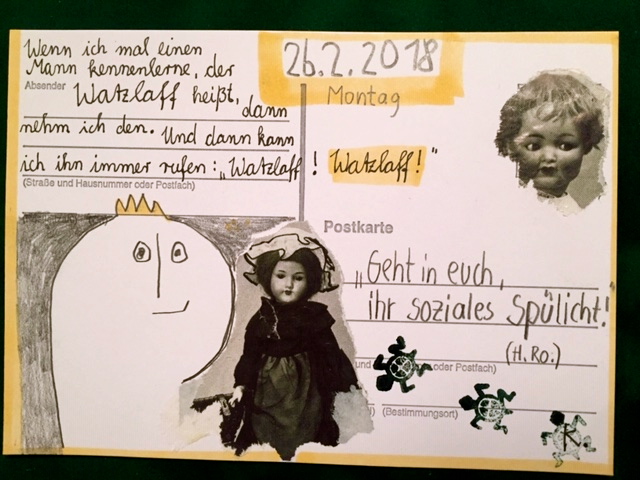 Wenn ich mal einen
Mann kennenlerne, der
Absender
Watzlaff heißt, dann
nehm ich den. Und dann kann
ich ihn immer rufen: „Watzlaff! Watzlaff!"
(Straße und Hausnummer oder Postfach)
26.2.2018
Montag
Postkarte
„Geht in euch,
ihr soziales Spülicht!
(H. Ro.)
und oder Postfach)
(Bestimmungsort)
K.